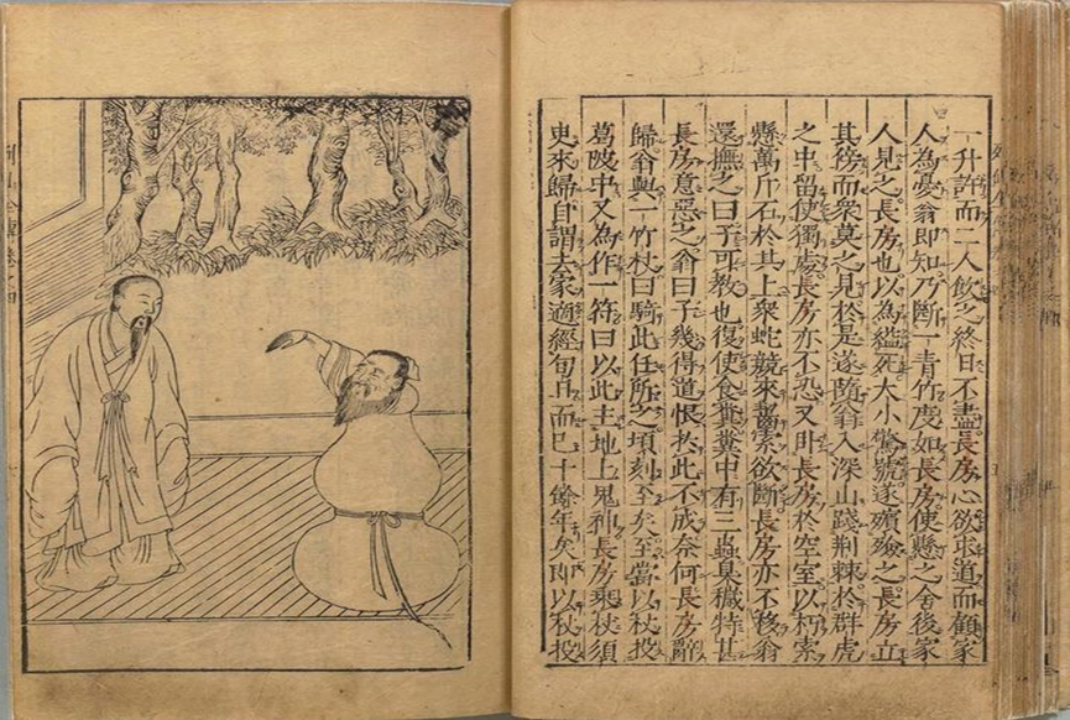 一升許而二人飲之終日不盡長房心欲求道而顧家
人為憂翁即知乃斷一青竹度如長房使懸之舍後家
人見之長房也以為縊死大小驚號遂殯殮之長房立
其傍而衆莫之見於是遂隨翁入深山踐荆棘於群虎
之中留使獨處長房亦不恐又卧長房於空室以朽索
懸萬斤石於其上衆蛇競來齧索欲斷長房亦不移翁
還撫之曰子可教也復使食糞糞中有三蟲臭穢特甚
長房意惡之翁曰子幾得道恨於此不成奈何長房辭
歸翁與一竹杖曰騎此任所之頃刻至矣至當以杖投
葛陂中又為作一符曰以此主地上鬼神長房乗杖須
臾來歸自謂去家適經旬日而已十餘年矣即以杖投
列仙全傳卷之四